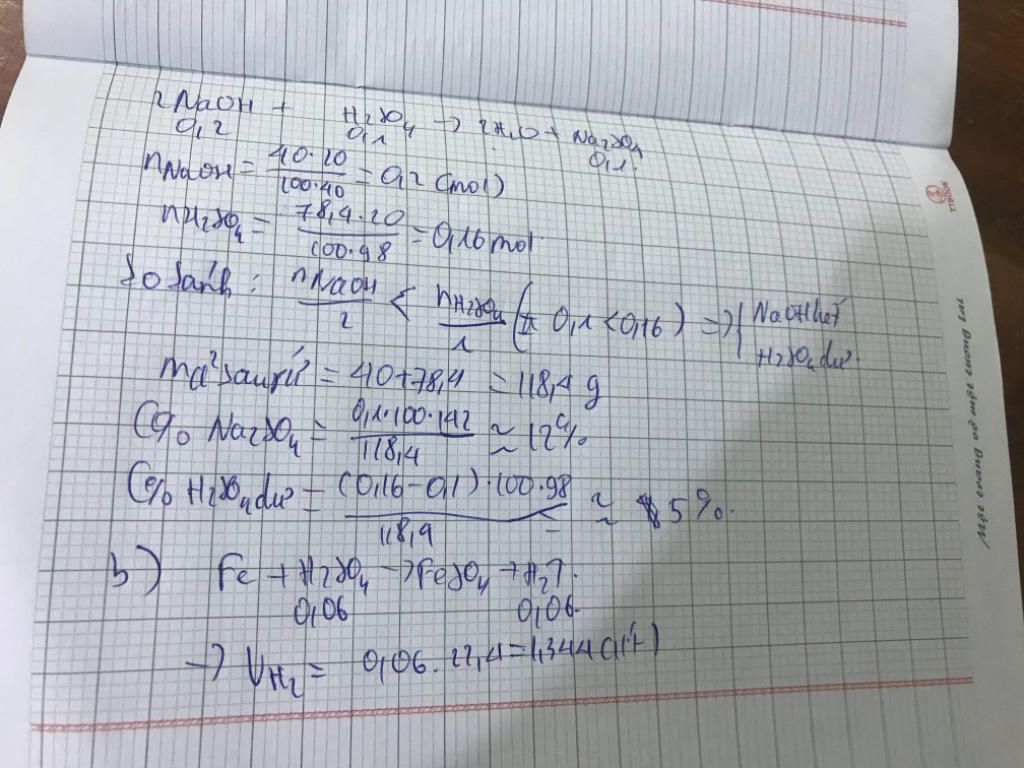 2NaOH + H₂SO₄ → 2H₂O + Na₂SO₄
0,2 0,1 0,1
nNaOH = 40.20 / 100.40 = 0,2 (mol)
nH₂SO₄ = 78,4.20 / 100.98 = 0,16 mol
So sánh : nNaOH / 2 < nH₂SO₄ / 1 ( 0,1 < 0,16 ) => { NaOH hết
H₂SO₄ dư
mdd sau pứ = 40 + 78,4 = 118,4 g
C% Na₂SO₄ = 0,1.100.142 / 118,4 ≈ 12%
C% H₂SO₄ dư = (0,16 - 0,1).100.98 / 118,4 ≈ 5%.
b) Fe + H₂SO₄ -> FeSO₄ + H₂↑.
0,06 0,06
-> VH₂ = 0,06.22,4 = 1,344 (lít)
Mặt cười vở ngắt cười lời